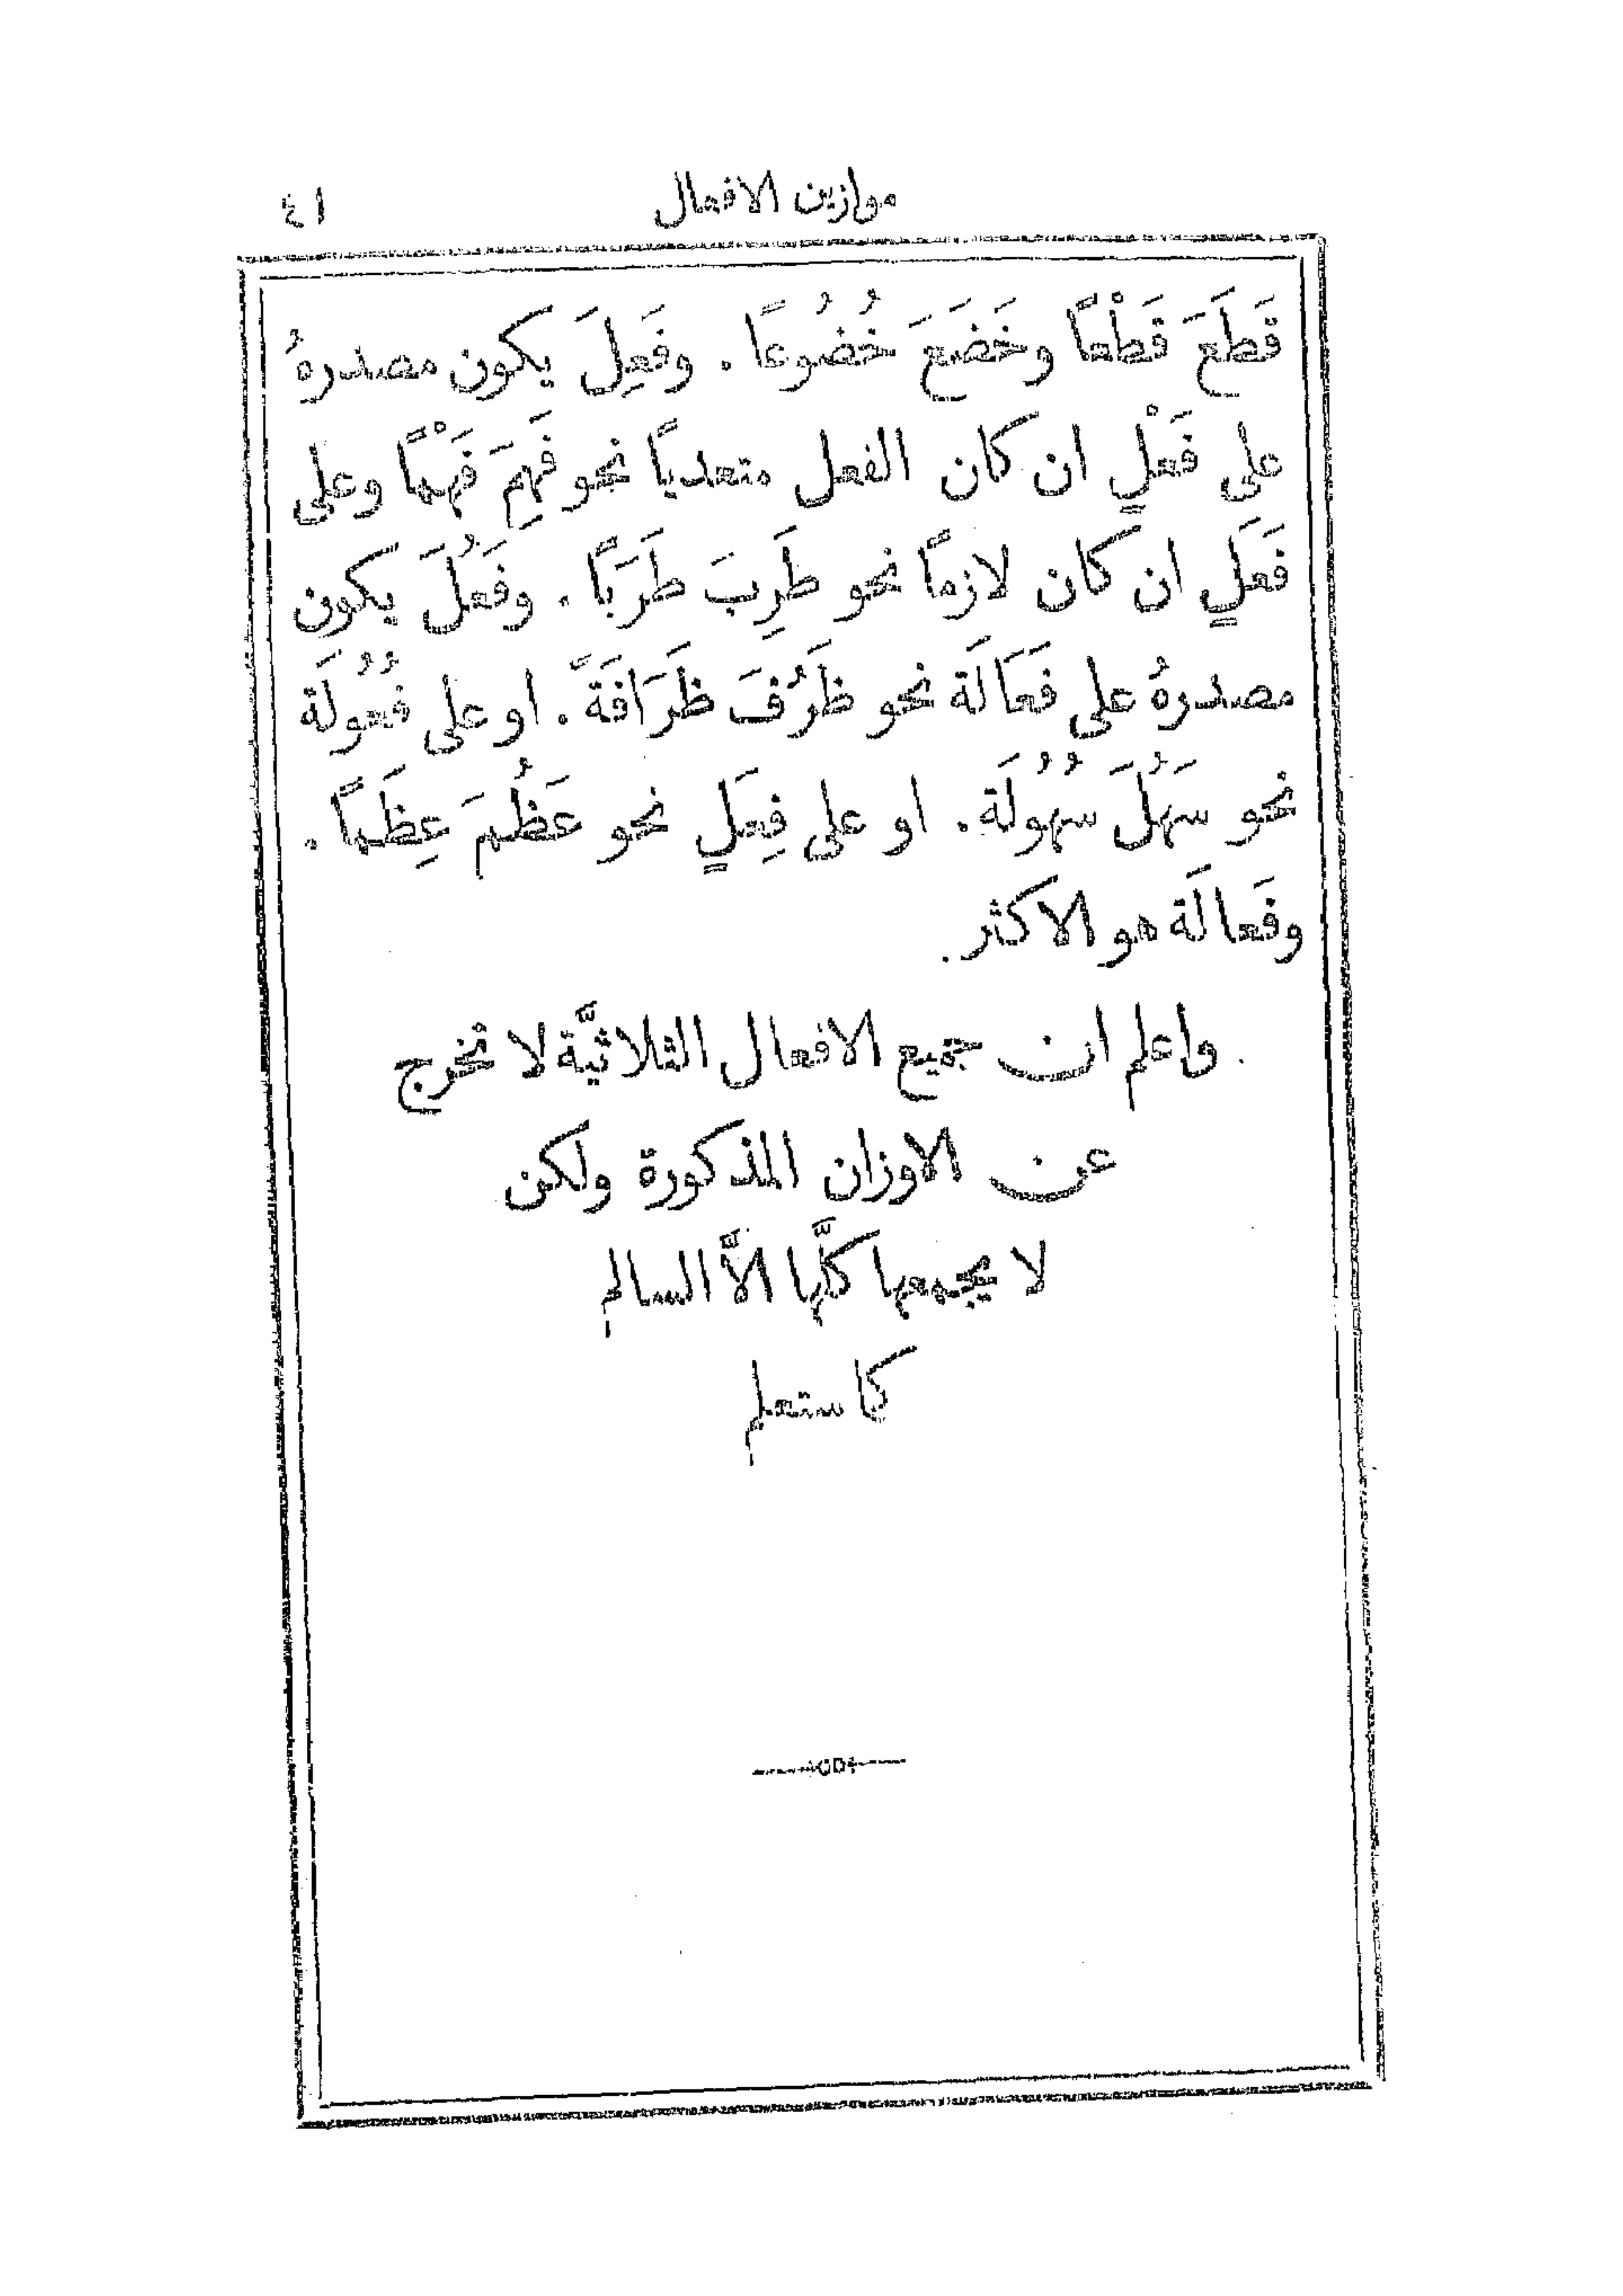 موازين الافعال ٤١
قَطَعَ قَطْعًا وخَضَعَ خُضُوعًا. وفَعِلَ يكون مصدرهُ
على فَعْلٍ ان كان الفعل متعدياً نحو فَهِمَ فَهْمًا وعلى
فَعَلٍ ان كان لازماً نحو طَرِبَ طَرَبًا. وفَعُلَ يكون
مصدرهُ على فَعَالَة نحو ظَرُفَ ظَرَافَةً. او على فُعُولَة
نحو سَهُلَ سُهُولَة. او على فِعَلٍ نحو عَظُمَ عِظَمًا.
وفَعالَة هو الاكثر.
واعلم ان جميع الافعال الثلاثيَّة لا تخرج
عن الاوزان المذكورة ولكن
لا يجمعها كلَّها الاَّ السالم
كما ستعلم